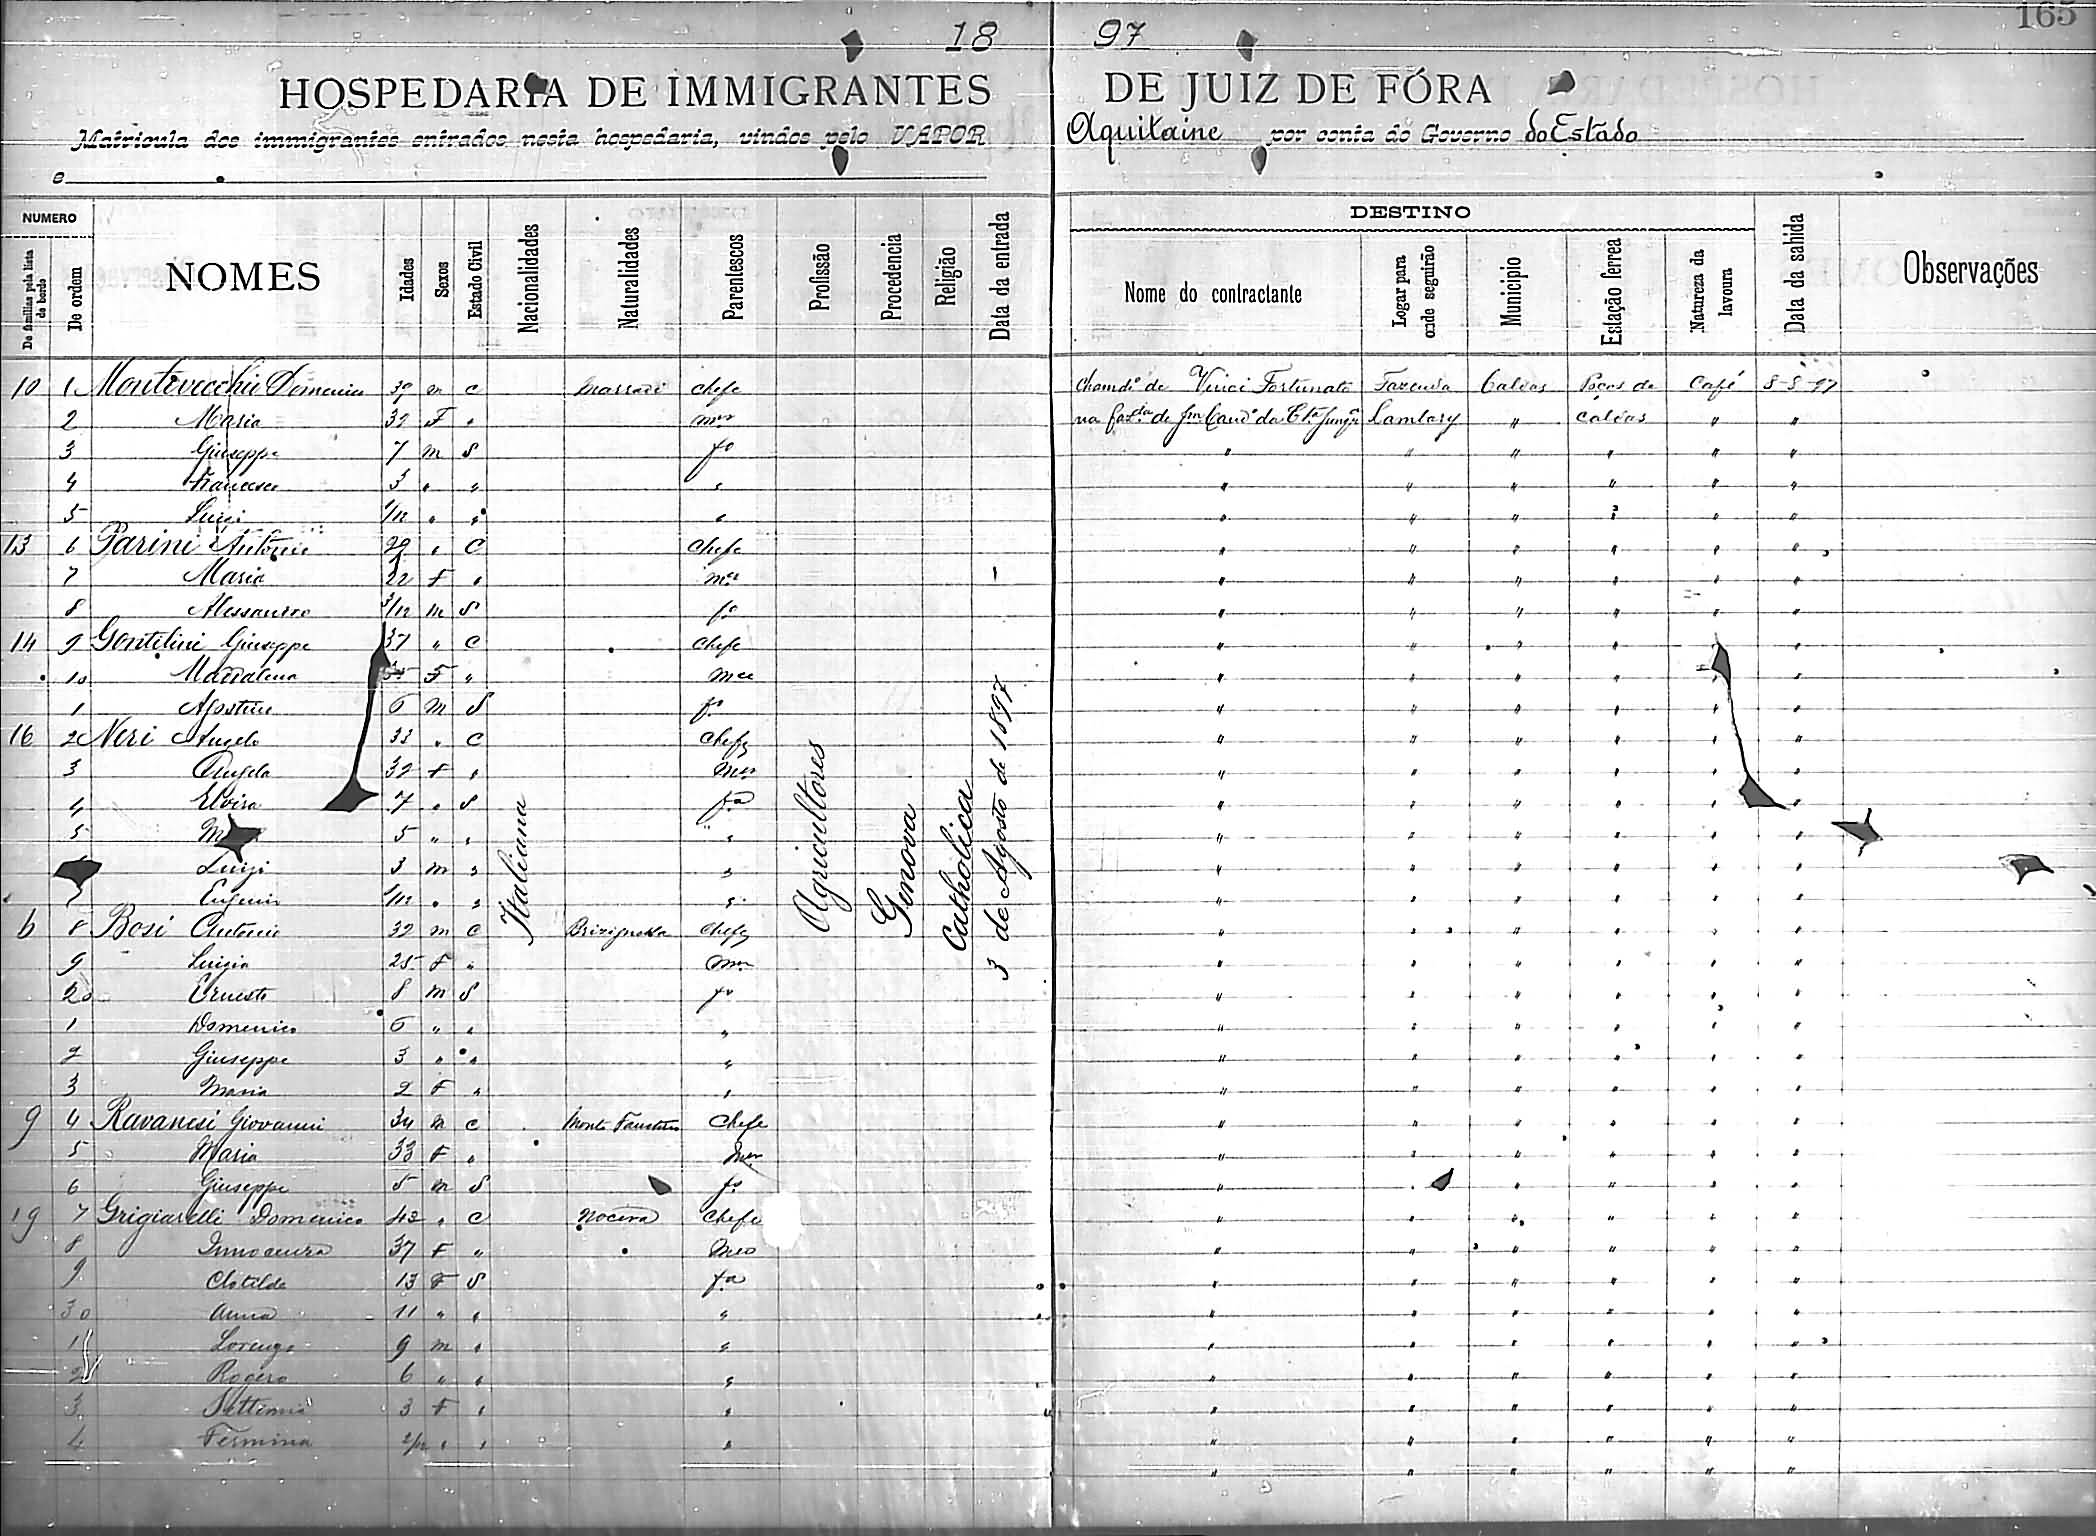 165
18 97
HOSPEDARIA DE IMMIGRANTES DE JUIZ DE FÓRA
Matricula dos immigrantes entrados nesta hospedaria, vindos pelo VAPOR Aquitaine por conta do Governo do Estado
e
NUMERO
De familias pela lista de bordo
De ordem
NOMES
Idades
Sexos
Estado Civil
Nacionalidades
Naturalidades
Parentescos
Profissão
Procedencia
Religião
Data da entrada
DESTINO
Nome do contractante
Logar para onde seguirão
Municipio
Estação ferrea
Natureza da lavoura
Data da sahida
Observações
10 1 Montevecchi Domenico 39 m C Chefe de Vinci Fortunato Fazenda Caldas Poços de Café 8-8-97
2 Maria 32 F " mer na de da Lambary " Caldas " "
3 Giuseppe 7 m S fo " " " " " "
4 Francesco 3 " " " " " " " " "
5 Luigi 1/12 " " " " " " " " "
13 6 Parini Antonio 29 " C Chefe " " " " " "
7 Maria 22 F " mer " " " " " "
8 Alessandro 3/12 m S fo " " " " " "
14 9 Gentilini Giuseppe 37 " C Chefe " " " " " "
10 Maddalena F " mer " " " " " "
1 Agostino 6 m S fo " " " " " "
16 2 Neri Angelo 33 " C Chefe " " " " " "
3 Angela 32 F " mer " " " " " "
4 Elvira 7 " S fa " " " " " "
5 5 " " " " " " " " "
Luigi 3 m " " " " " " " "
7 Eugenio 1/12 " " " " " " " " "
6 8 Bosi Antonio 32 m C Brizighella Chefe " " " " " "
9 Luigia 25 F " mer " " " " " "
20 Ernesto 8 m S fo " " " " " "
1 Domenico 6 " " " " " " " " "
2 Giuseppe 3 " " " " " " " " "
3 Maria 2 F " " " " " " " "
9 4 Ravanesi Giovanni 34 m C Monte Chefe " " " " " "
5 Maria 33 F " mer " " " " " "
6 Giuseppe 5 m S fo " " " " " "
19 7 Grigiarelli Domenico 43 " C Nocera Chefe " " " " " "
8 Innocenza 37 F " mer " " " " " "
9 Clotilde 13 F S fa " " " " " "
30 Anna 11 " " " " " " " " "
1 Lorenzo 9 m " " " " " " " "
2 Rogero 6 " " " " " " " " "
3 Settimia 3 F " " " " " " " "
4 Fermina 2/12 " " " " " " " " "
" " " " " "
Italiana
Agricultores
Genova
Catholica
3 de Agosto de 1897